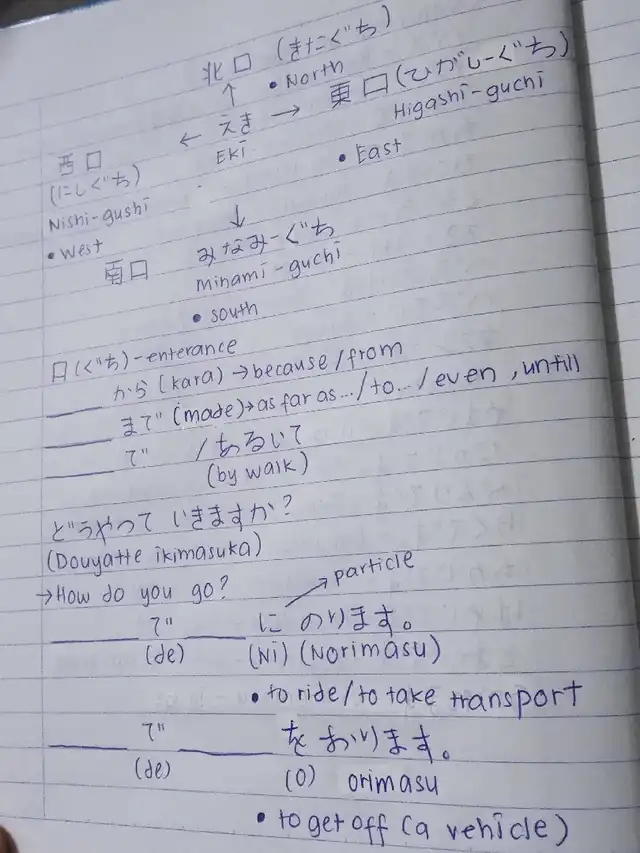 北口 (きたぐち)
• North
↑
← えき → 東口 (ひがしーぐち)
Eki
Higashi-guchi
• East
西口
(にしぐち)
Nishi-gushi
• West
↓
南口 みなみーぐち
minami-guchi
• south
口(ぐち)-enterance
____ から (kara) → because/from
____ まで (made) → as far as.../to.../even, untill
____ で / あるいて
(by walk)
どうやって いきますか?
(Douyatte ikimasuka)
→ How do you go?
particle
____ で ____ に のります。
(de) (Ni) (Norimasu)
• to ride/to take transport
____ で ____ を おります。
(de) (O) orimasu
• to get off (a vehicle)